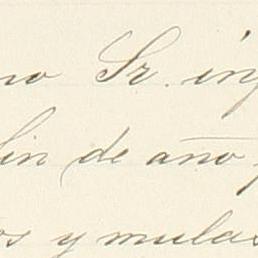 no Sr. inf
fin de año
os y mulas